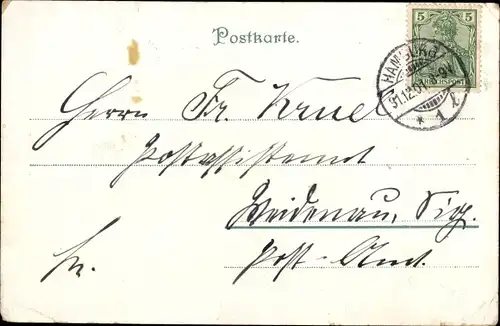 Postkarte.
5 5
REICHSPOST
HAMBURG
31.12.01. 8-9V
* 1 l
Herrn Fr. Kruel
Postassistent
Weidenau, Sieg.
Post-Amt.
Hr.